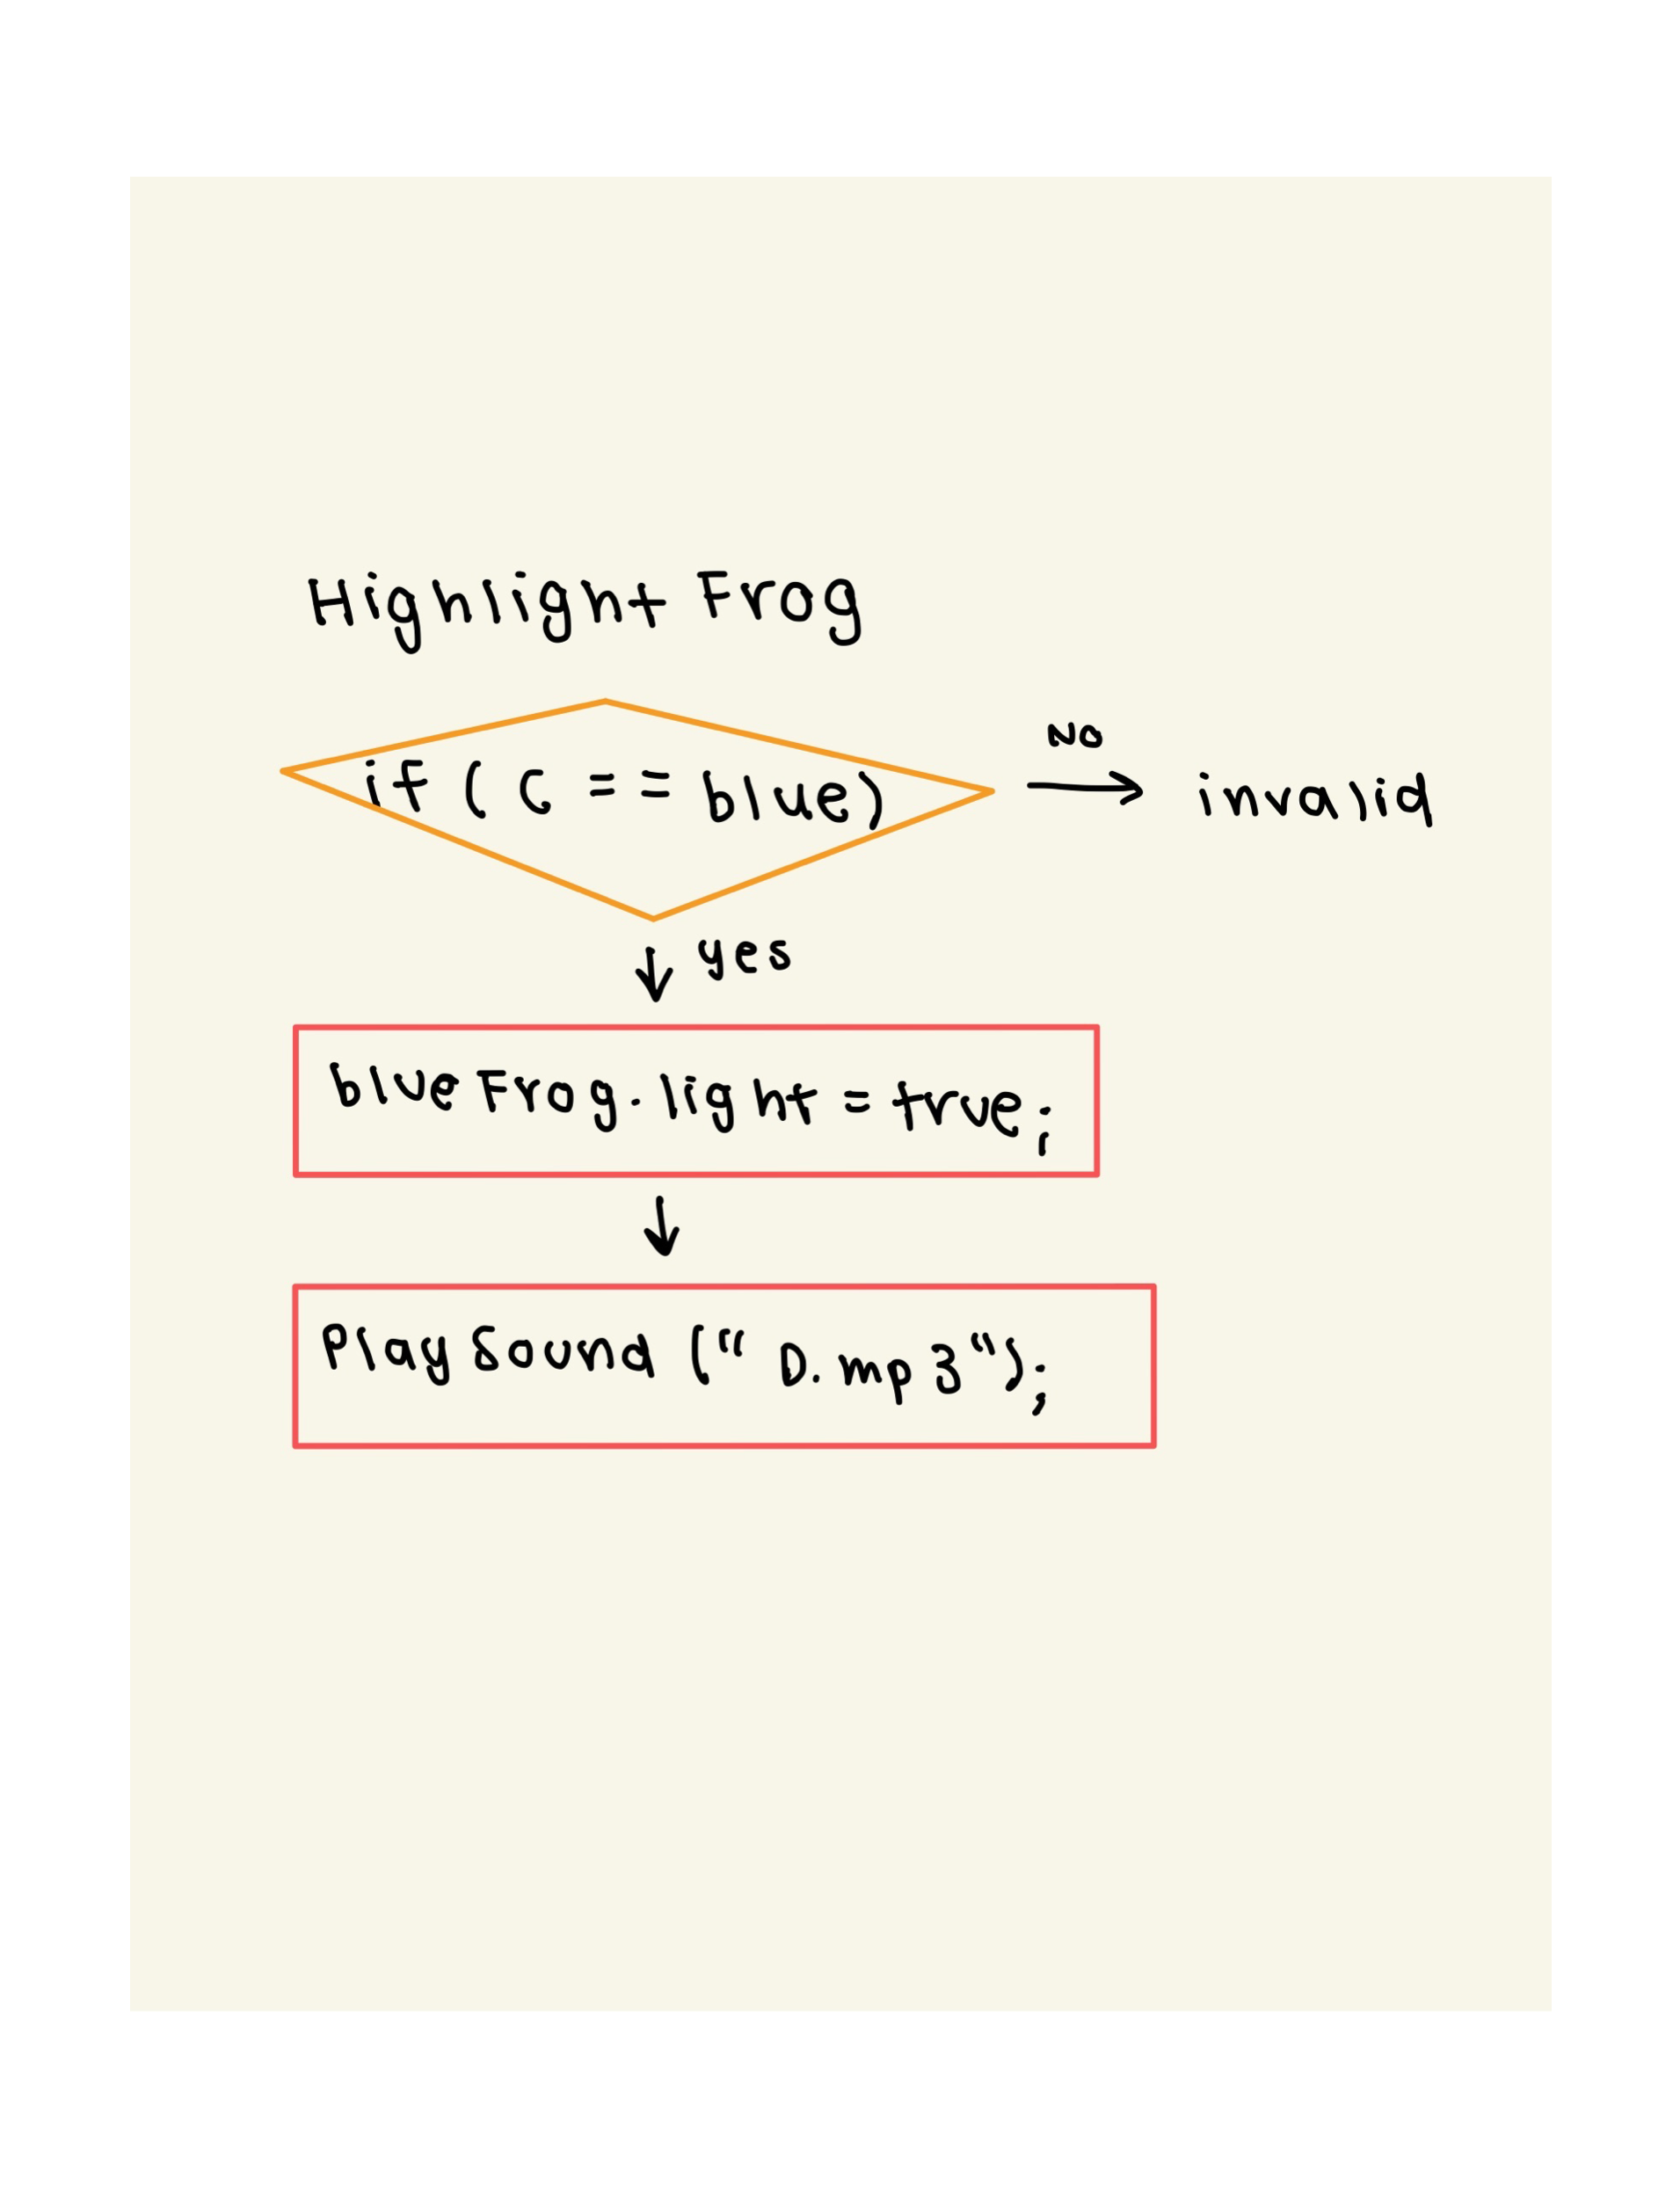 Highlight Frog
if ( c == blue)
No
invalid
yes
blueFrog.light = true;
PlaySound ("D.mp3");